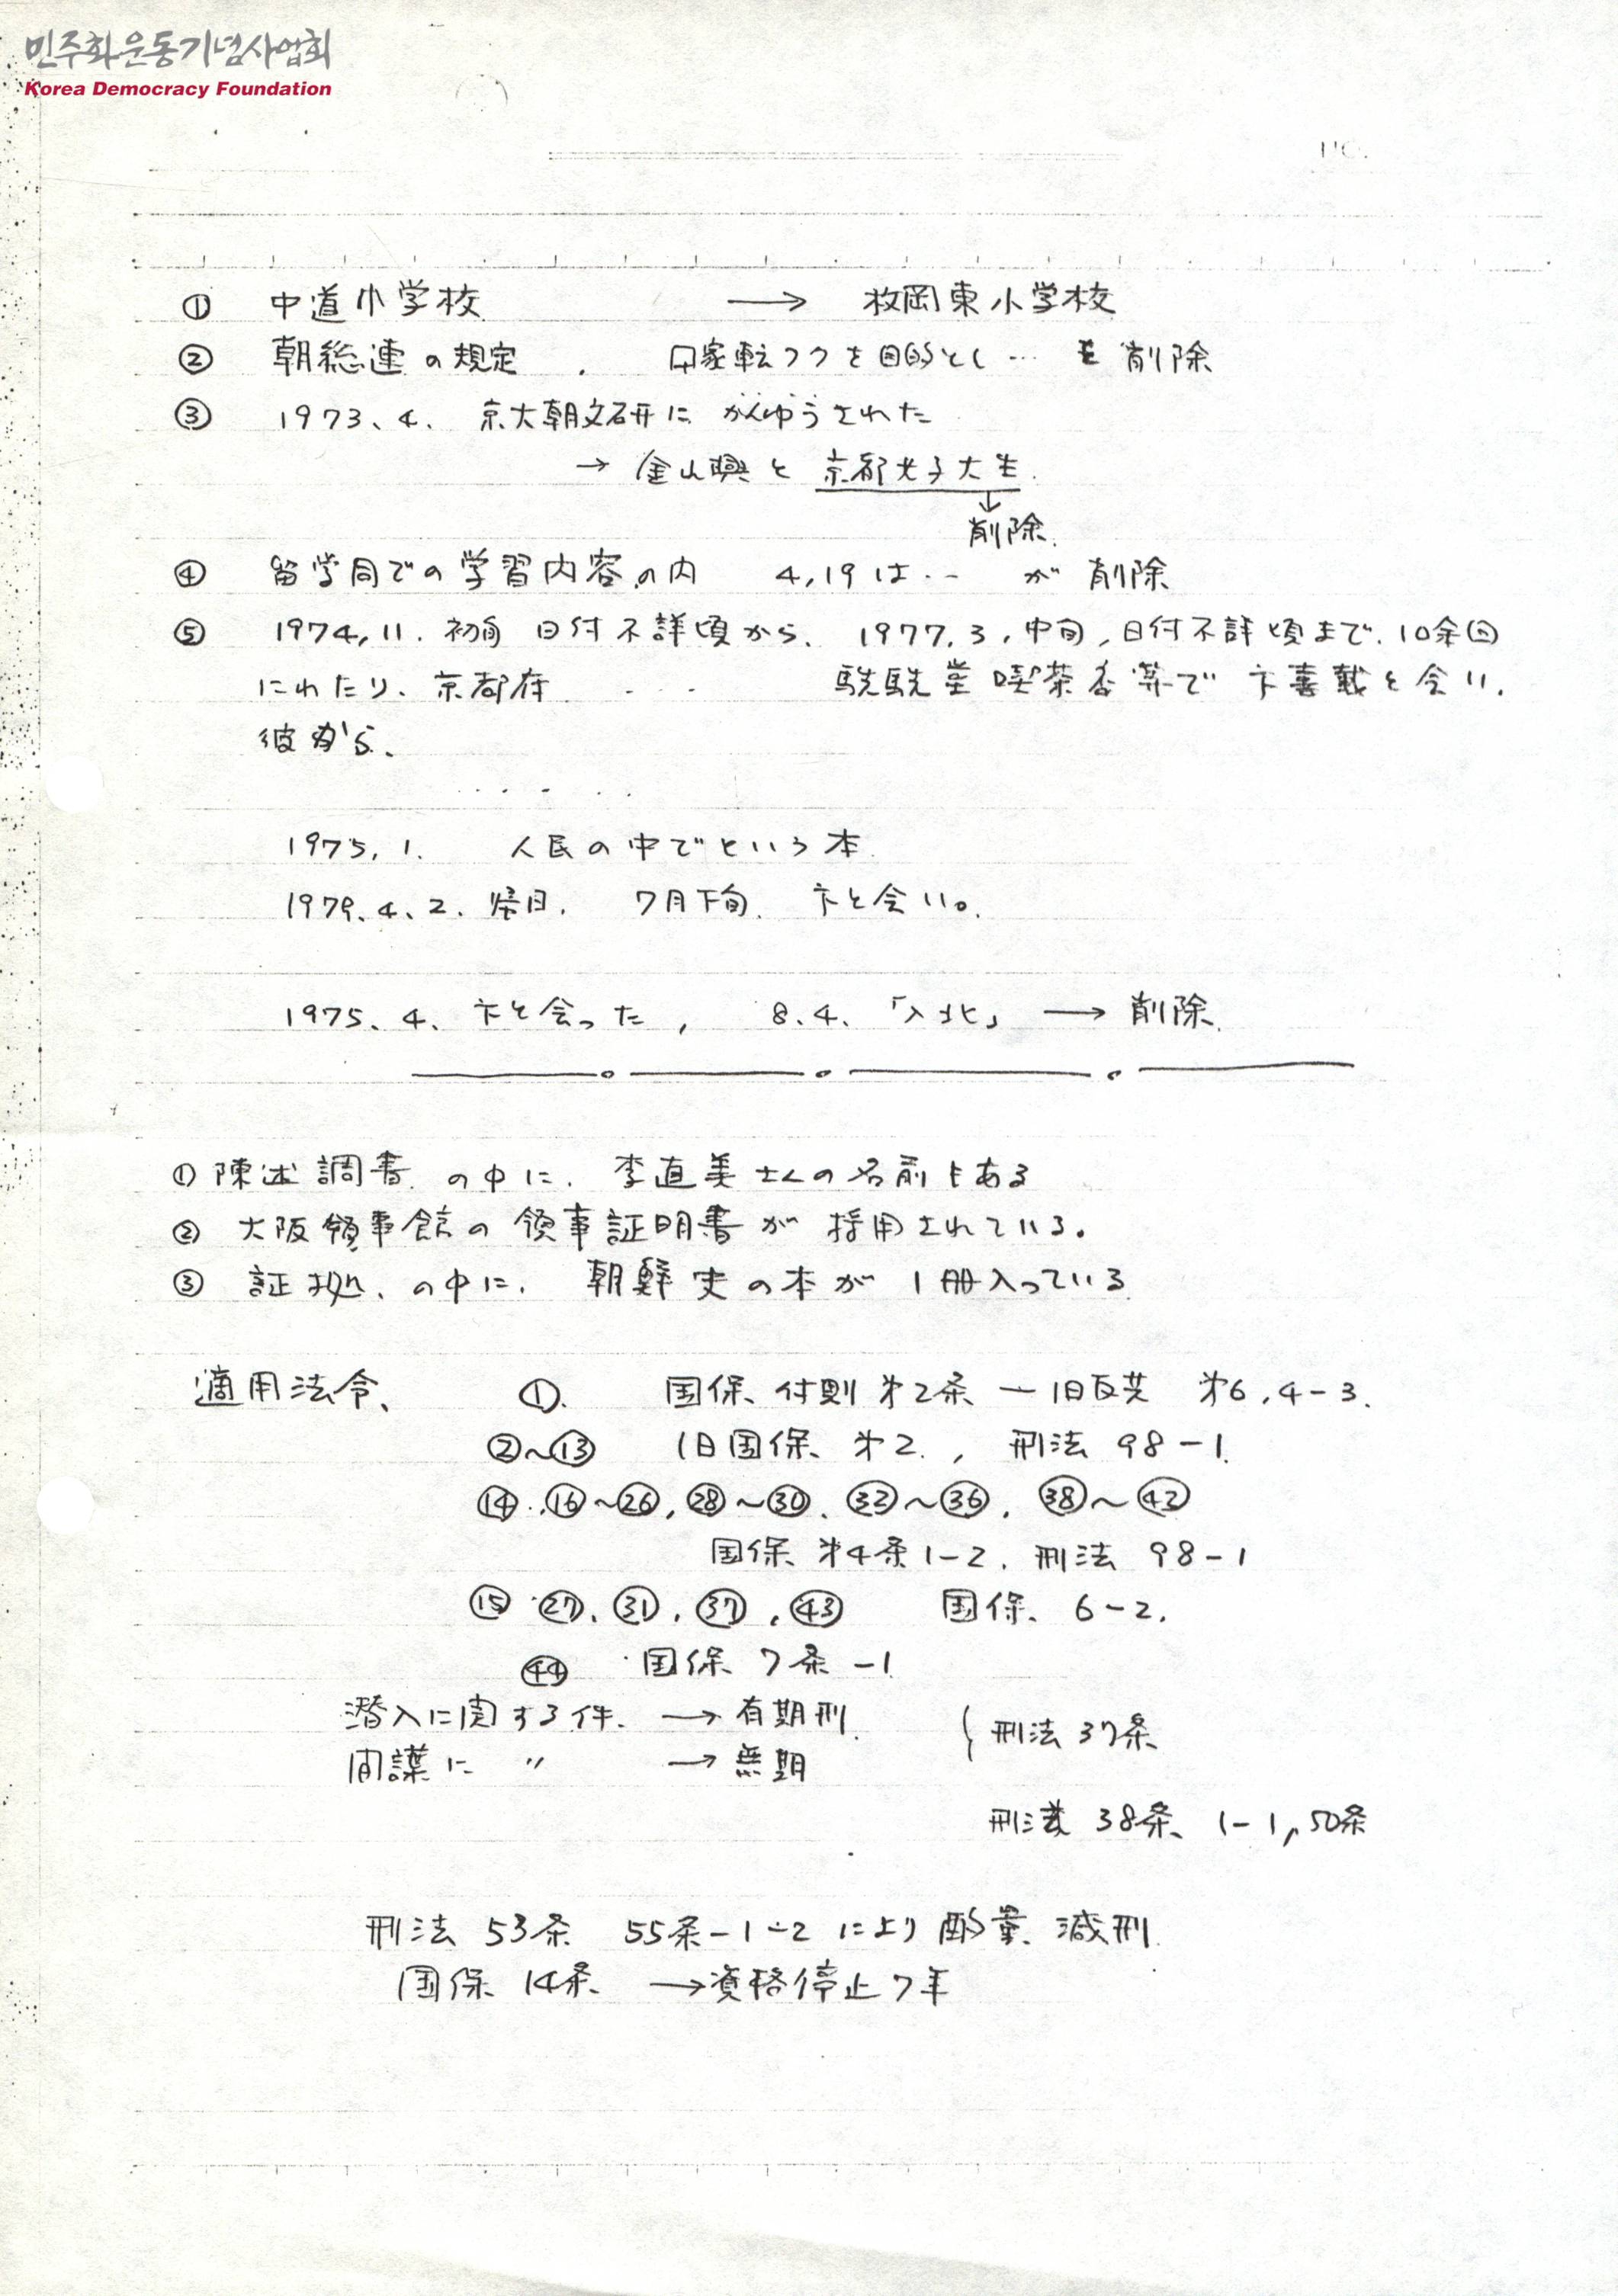 민주화운동기념사업회
Korea Democracy Foundation
① 中道小学校 → 枚岡東小学校
② 朝総連の規定. 国家転フクを目的とし… を削除
③ 1973、4. 京大朝文研に かんゆうされた
→ 金山興と 京都女子大生.
↓
削除.
④ 留学同での学習内容の内 4,19は‥ が 削除
⑤ 1974,11. 初旬 日付不詳頃から、1977.3,中旬,日付不詳頃まで、10余回
にわたり、京都府 ... 駸々堂 喫茶店等で 卞喜載と会い、
彼から、
. . . . .
1975,1. 人民の中でという本
1979、4、2. 帰日. 7月下旬. 卞と会い。
1975、4、卞と会った, 8.4、「入北」 → 削除.
① 陳述調書 の中に、李直美さんの名前もある
② 大阪領事館の領事証明書が採用されている。
③ 証拠、の中に、朝鮮史の本が 1冊入っている
適用法令、 ①. 国保、付則 第2条 — 旧反共 第6,4-3.
②〜⑬ 旧国保、第2., 刑法 98-1.
⑭..⑯〜㉖,㉘〜㉚、㉜〜㊱, ㊳〜㊷
国保、第4条1-2. 刑法 98-1
⑮ ㉗、㉛,㊲,㊸ 国保、6-2.
㊹ 国保、7条-1
潜入に関する件. → 有期刑. { 刑法 37条
間諜に 〃 → 無期
刑法 38条、1-1,50条
刑法 53条 55条-1-2 により 酌量、減刑
国保、14条、→資格停止7年